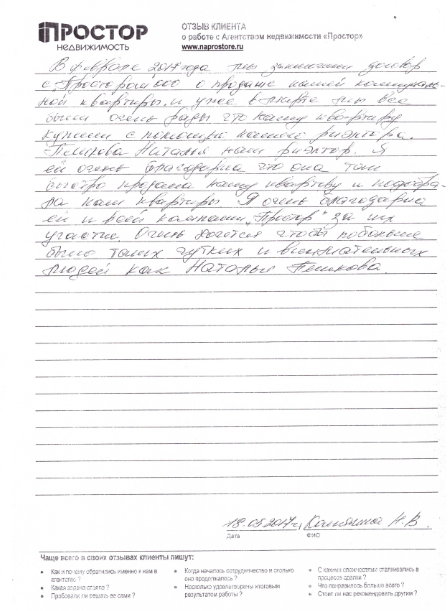 ПРОСТОР
НЕДВИЖИМОСТЬ
ОТЗЫВ КЛИЕНТА
о работе с Агентством недвижимости «Простор»
www.naprostore.ru
В феврале 2017 года мы заключили договор
с "Простором" ООО о продаже нашей коммуналь-
ной квартиры и уже в марте мы все
были очень рады что нашу квартиру
купили с помощью нашего риэлтора.
Наталья наш риэлтор. Я
ей очень благодарна что она так
быстро продала нашу квартиру и подобра-
ла нам квартиры. Я очень благодарна
ей и всей компании "Простор" за их
участие. Очень хочется чтобы побольше
было таких чутких и внимательных
людей как Наталья
18.03.2017г. Н. В.
Дата
ФИО
Чаще всего в своих отзывах клиенты пишут:
Как и почему обратились именно к нам в агентство?
Какая задача стояла?
Пробовали ли решать ее сами?
Когда началось сотрудничество и сколько оно продолжалось?
Насколько удовлетворены итоговым результатом работы?
С какими сложностями сталкивались в процессе сделки?
Что понравилось больше всего?
Стоит ли нас рекомендовать другим?